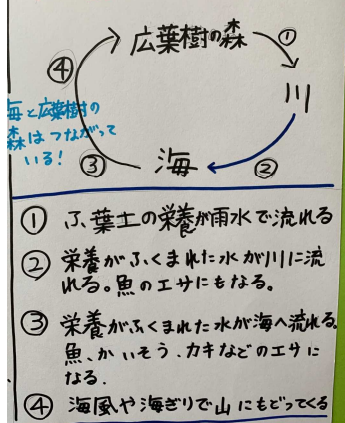 広葉樹の森
①
川
②
海
③
④
海と広葉樹の
森はつながって
いる!
① ふ葉土の栄養が雨水で流れる
② 栄養がふくまれた水が川に流
れる。魚のエサにもなる。
③ 栄養がふくまれた水が海へ流れる。
魚、かいそう、カキなどのエサに
なる.
④ 海風や海ぎりで山にもどってくる